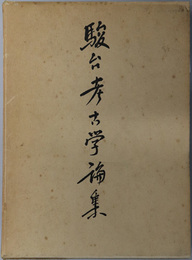 駿台考古学論集